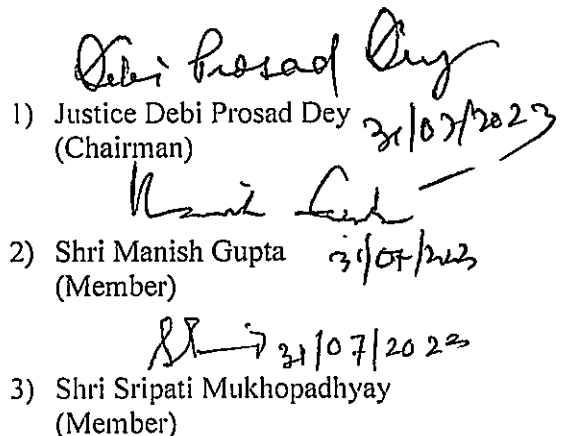 Debi Prosad Dey
1) Justice Debi Prosad Dey 31/07/2023
(Chairman)
2) Shri Manish Gupta 31/07/2023
(Member)
31/07/2023
3) Shri Sripati Mukhopadhyay
(Member)